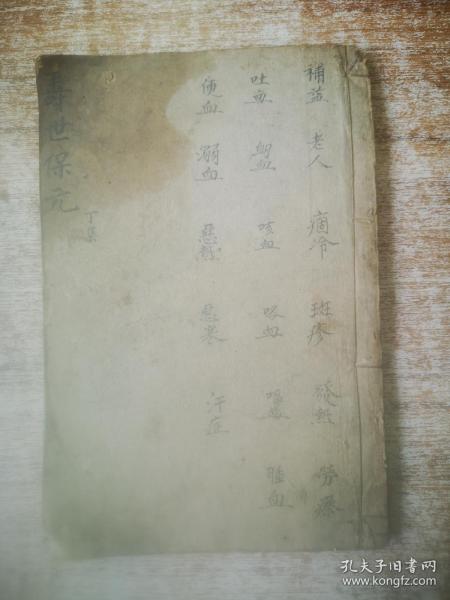 補益 老人 痼冷 斑疹 發熱 勞瘵
吐血 衄血 咳血 咯血 唾血
便血 溺血 惡熱 惡寒 汗症
壽世保元
丁集
孔夫子旧书网
www.kongfz.com